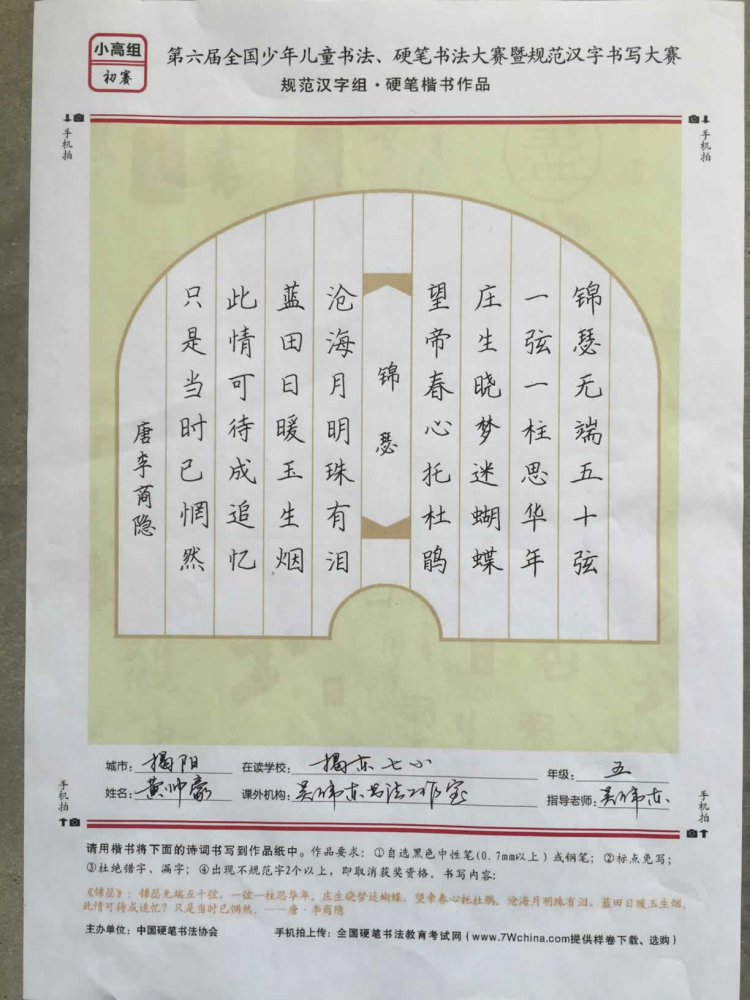 小高组
初赛
第六届全国少年儿童书法、硬笔书法大赛暨规范汉字书写大赛
规范汉字组·硬笔楷书作品
手机拍
手机拍
锦瑟无端五十弦
一弦一柱思华年
庄生晓梦迷蝴蝶
望帝春心托杜鹃
锦瑟
沧海月明珠有泪
蓝田日暖玉生烟
此情可待成追忆
只是当时已惘然
唐李商隐
城市：揭阳 在读学校：揭东七小 年级：五
姓名：黄帅豪 课外机构：吴伟东书法工作室 指导老师：吴伟东
手机拍
手机拍
请用楷书将下面的诗词书写到作品纸中。作品要求：①自选黑色中性笔(0.7mm以上)或钢笔；②标点免写；
③杜绝错字、漏字；④出现不规范字2个以上，即取消获奖资格。书写内容：
《锦瑟》：锦瑟无端五十弦，一弦一柱思华年。庄生晓梦迷蝴蝶，望帝春心托杜鹃。沧海月明珠有泪，蓝田日暖玉生烟。
此情可待成追忆？只是当时已惘然。——唐·李商隐
主办单位：中国硬笔书法协会 手机拍上传：全国硬笔书法教育考试网（www.7Wchina.com提供样卷下载、选购）